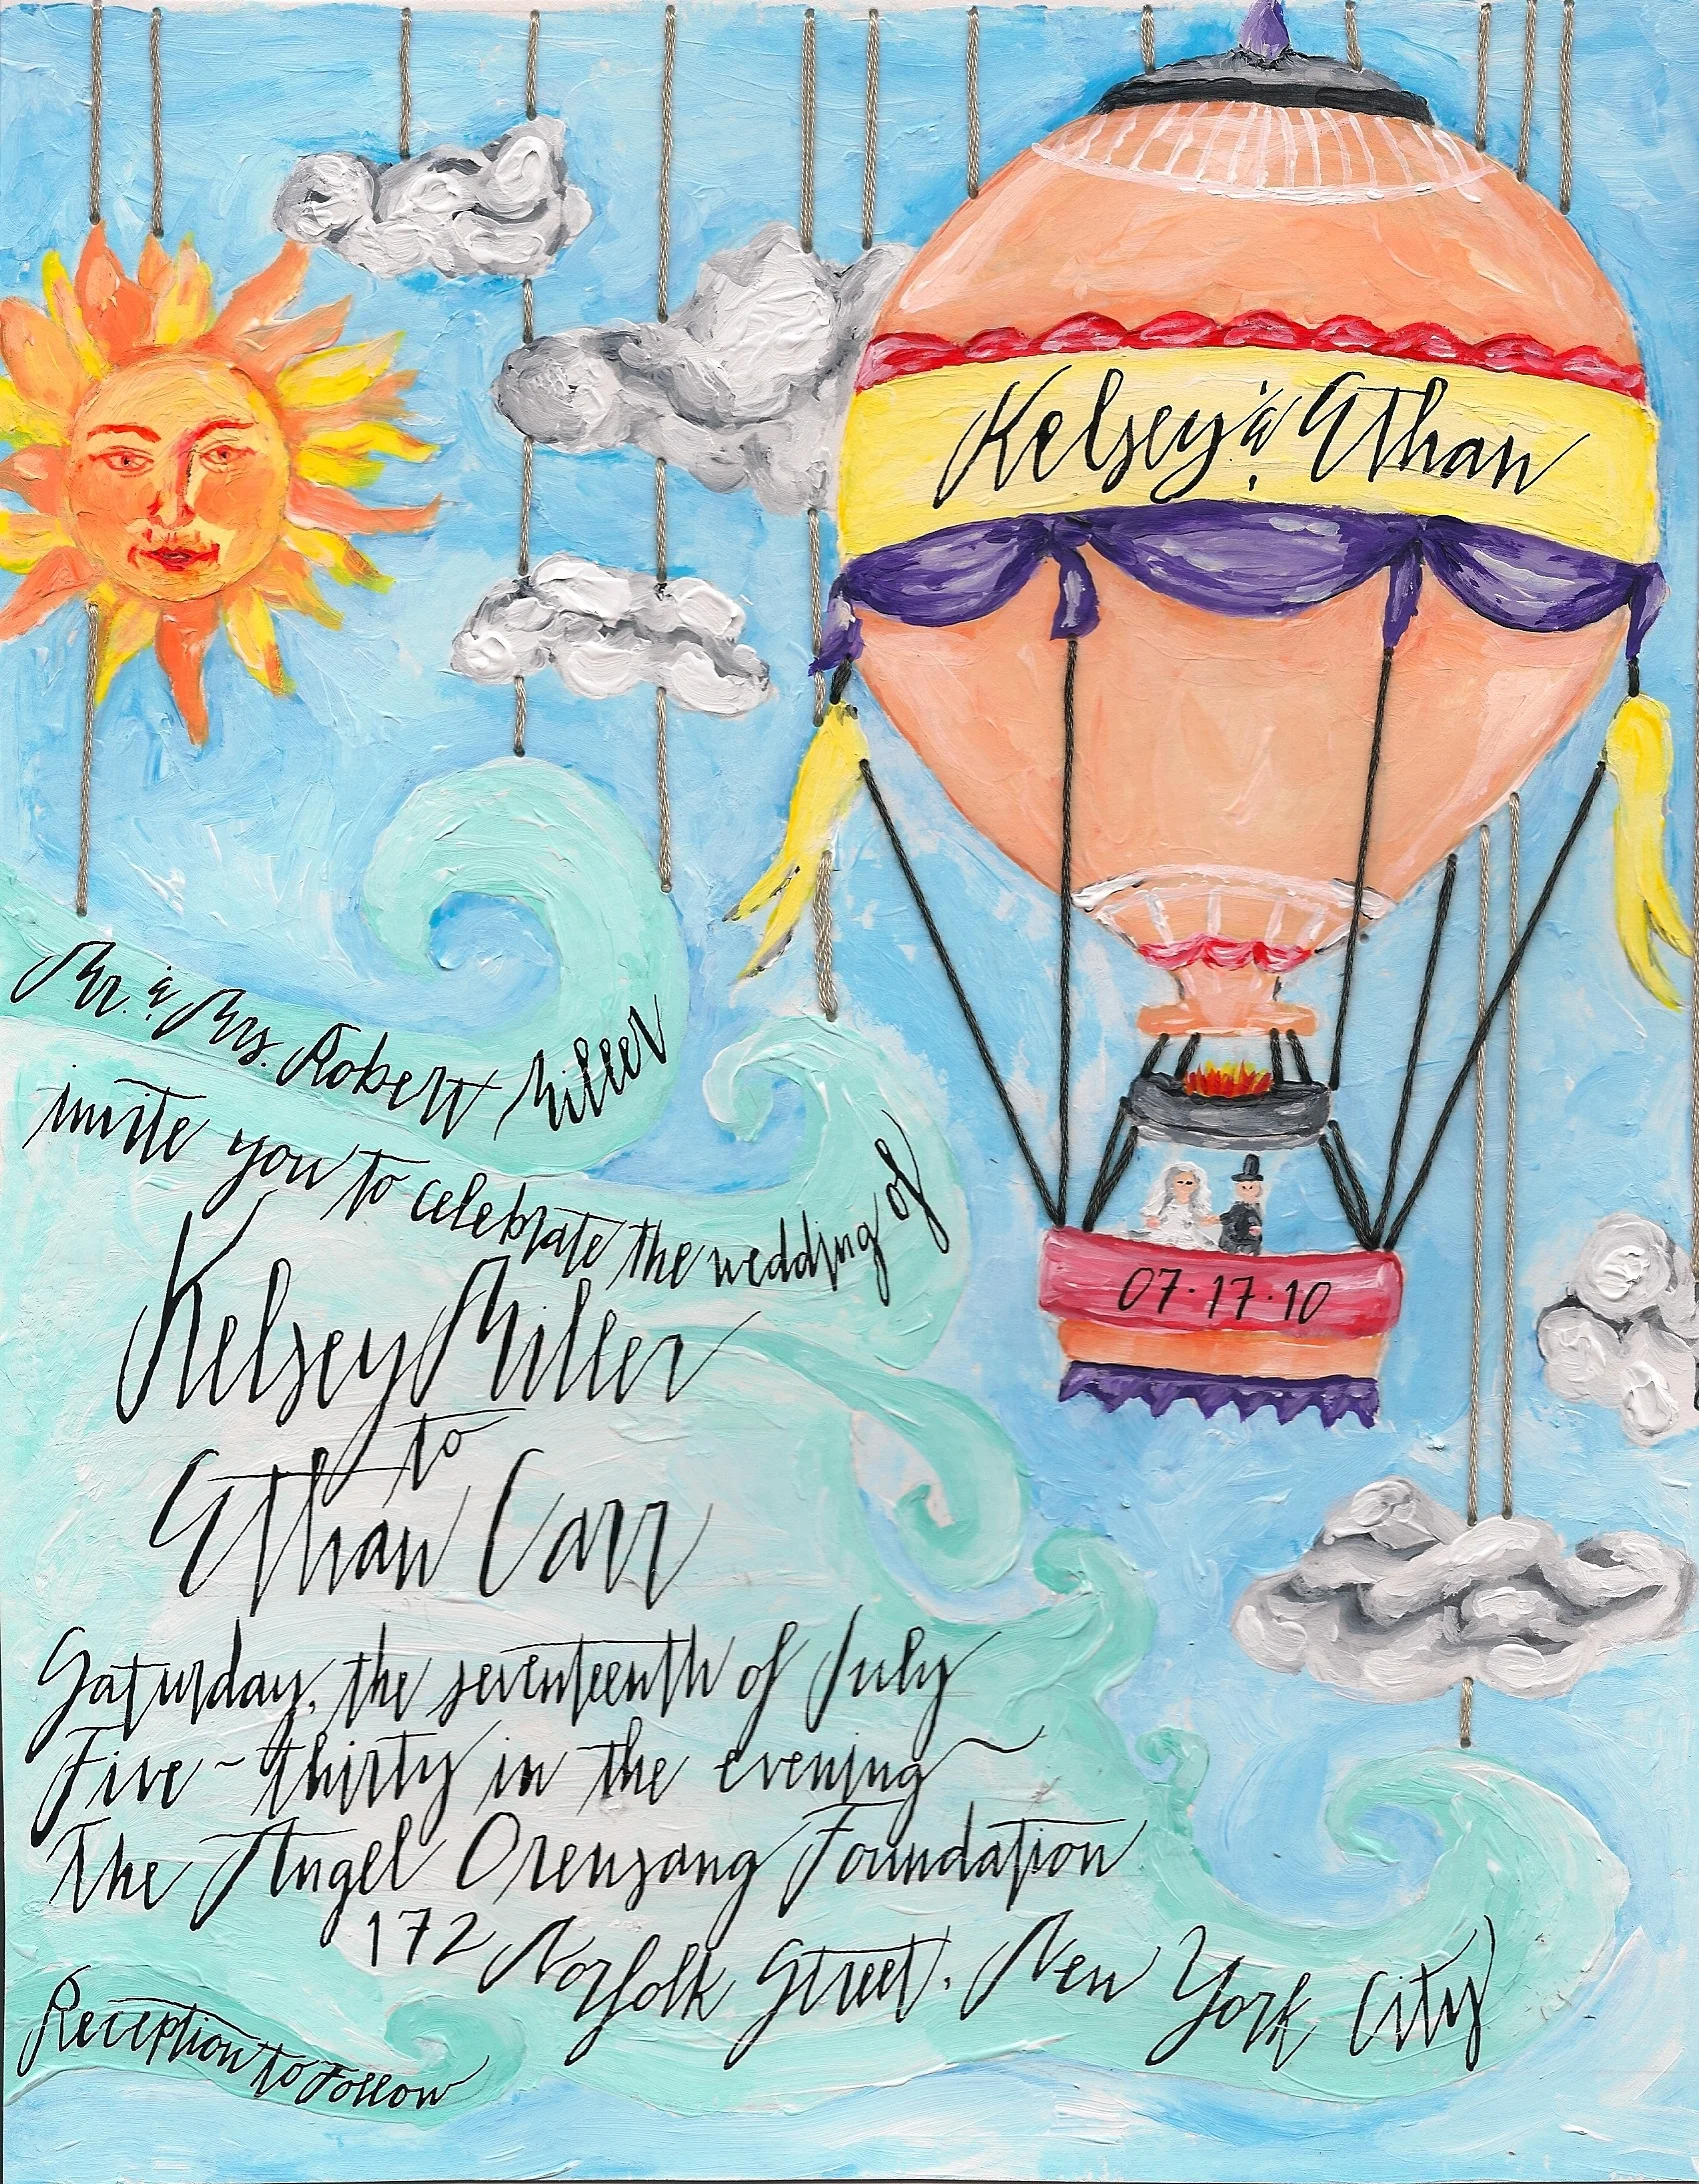 Kelsey & Ethan
Mr. & Mrs. Robert Miller
invite you to celebrate the wedding of
07·17·10
Kelsey Miller
to
Ethan Carr
Saturday, the seventeenth of July
Five~thirty in the evening~
The Angel Orensang Foundation
172 Norfolk Street, New York City
Reception to Follow